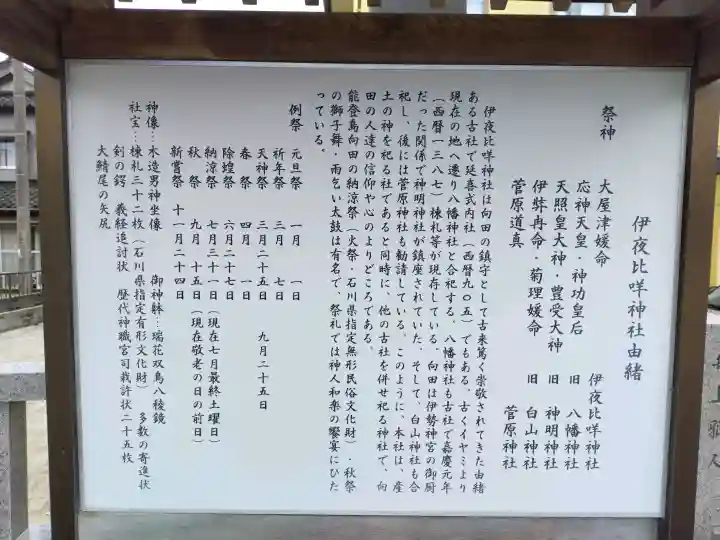 伊夜比咩神社由緒
祭神
大屋津媛命 伊夜比咩神社
応神天皇・神功皇后 旧 八幡神社
天照皇大神・豊受大神 旧 神明神社
伊弉冉命・菊理媛命 旧 白山神社
菅原道真 菅原神社
伊夜比咩神社は向田の鎮守として古来篤く崇敬されてきた由緒
ある古社で延喜式内社(西暦九〇五)でもある。古くイヤミより
現在の地へ遷り八幡神社と合祀する。八幡神社も古社で嘉慶元年
(西暦一三八七)棟札等が現存している。向田は伊勢神宮の御厨
だった関係で神明神社が鎮座されていた。そして、白山神社も合
祀し、後には菅原神社も勧請している。このように、本社は、産
土の神を祀る社であると同時に、他の古社を併せ祀る神社で、向
田の人達の信仰や心のよりどころである。
能登島向田の納涼祭(火祭・石川県指定無形民俗文化財)・秋祭
の獅子舞・雨乞い太鼓は有名で、祭礼では神人和楽の饗宴にひた
っている。
例祭 元旦祭 一月 一日
祈年祭 三月 七日
天神祭 三月二十五日 九月二十五日
春祭 四月 一日
除蝗祭 六月二十七日
納涼祭 七月三十一日(現在七月最終土曜日)
秋祭 九月 十五日(現在敬老の日の前日)
新嘗祭 十一月二十四日
神像…木造男神坐像 御神躰…瑞花双鳥八稜鏡
社宝…棟札三十二枚(石川県指定有形文化財) 多数の寄進状
剣の鍔 義経追討状 歴代神職宮司裁許状二十五枚
大鯖尾の矢尻